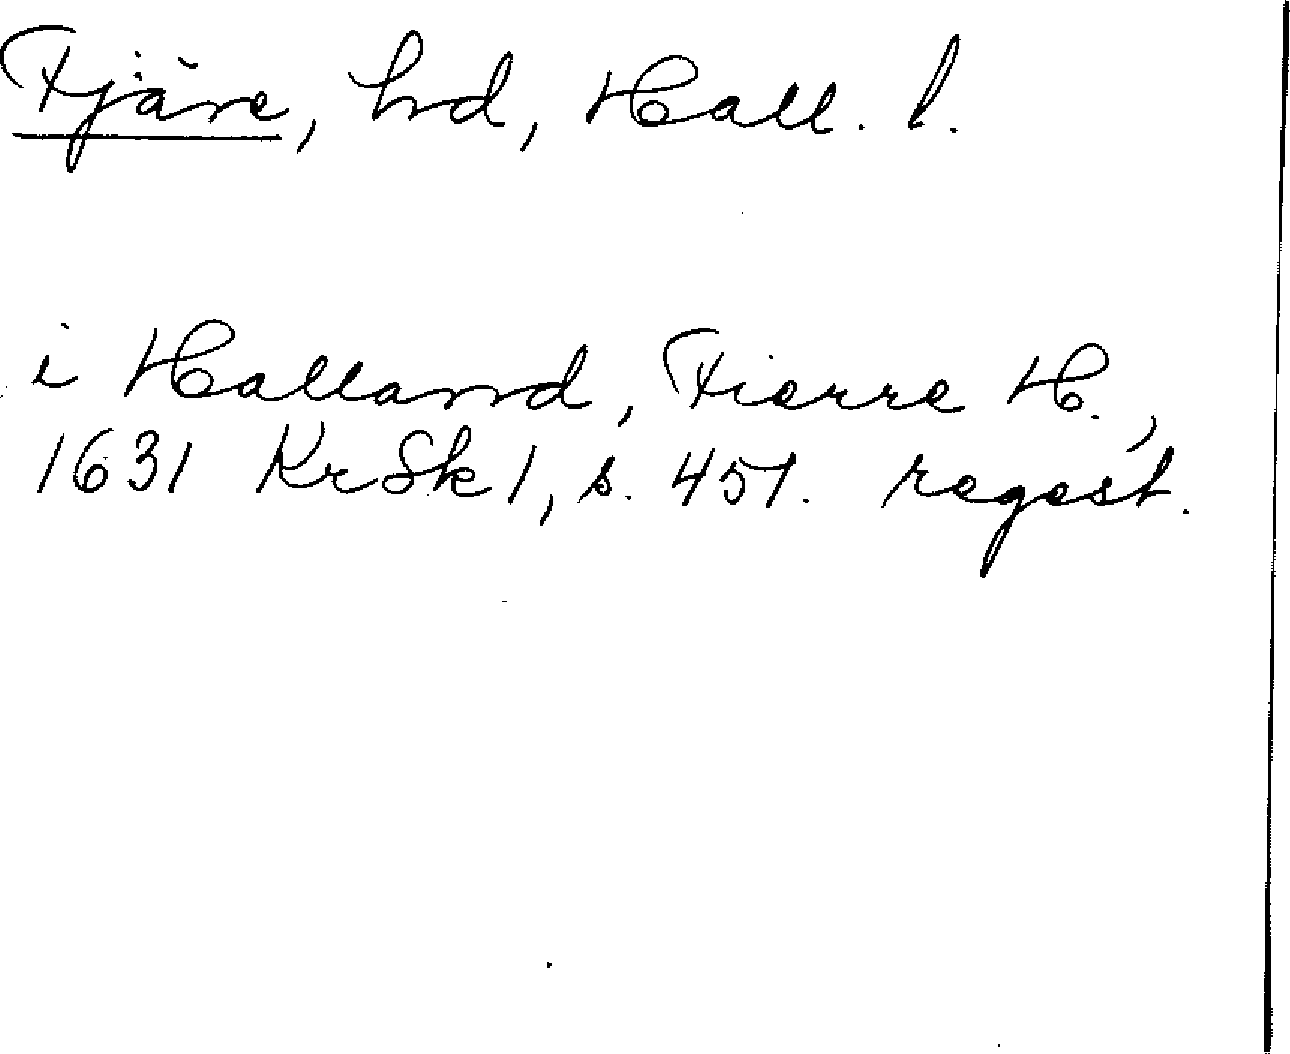 Fjäre, hd, Hall. l.
i Halland, Fierre H.,
1631 KrSk 1, s. 451. regest.